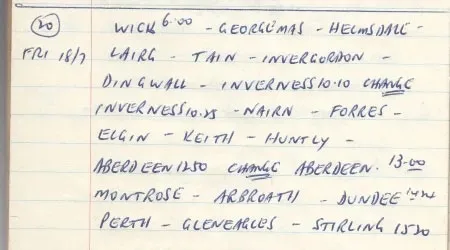 20 WICK 6.00 - GEORGEMAS - HELMSDALE -
FRI 18/7 LAIRG - TAIN - INVERGORDON -
DINGWALL - INVERNESS 10.10 CHANGE
INVERNESS 10.25 - NAIRN - FORRES -
ELGIN - KEITH - HUNTLY -
ABERDEEN 1250 CHANGE ABERDEEN. 13-00
MONTROSE - ARBROATH - DUNDEE 1424
PERTH - GLENEAGLES - STIRLING 1520